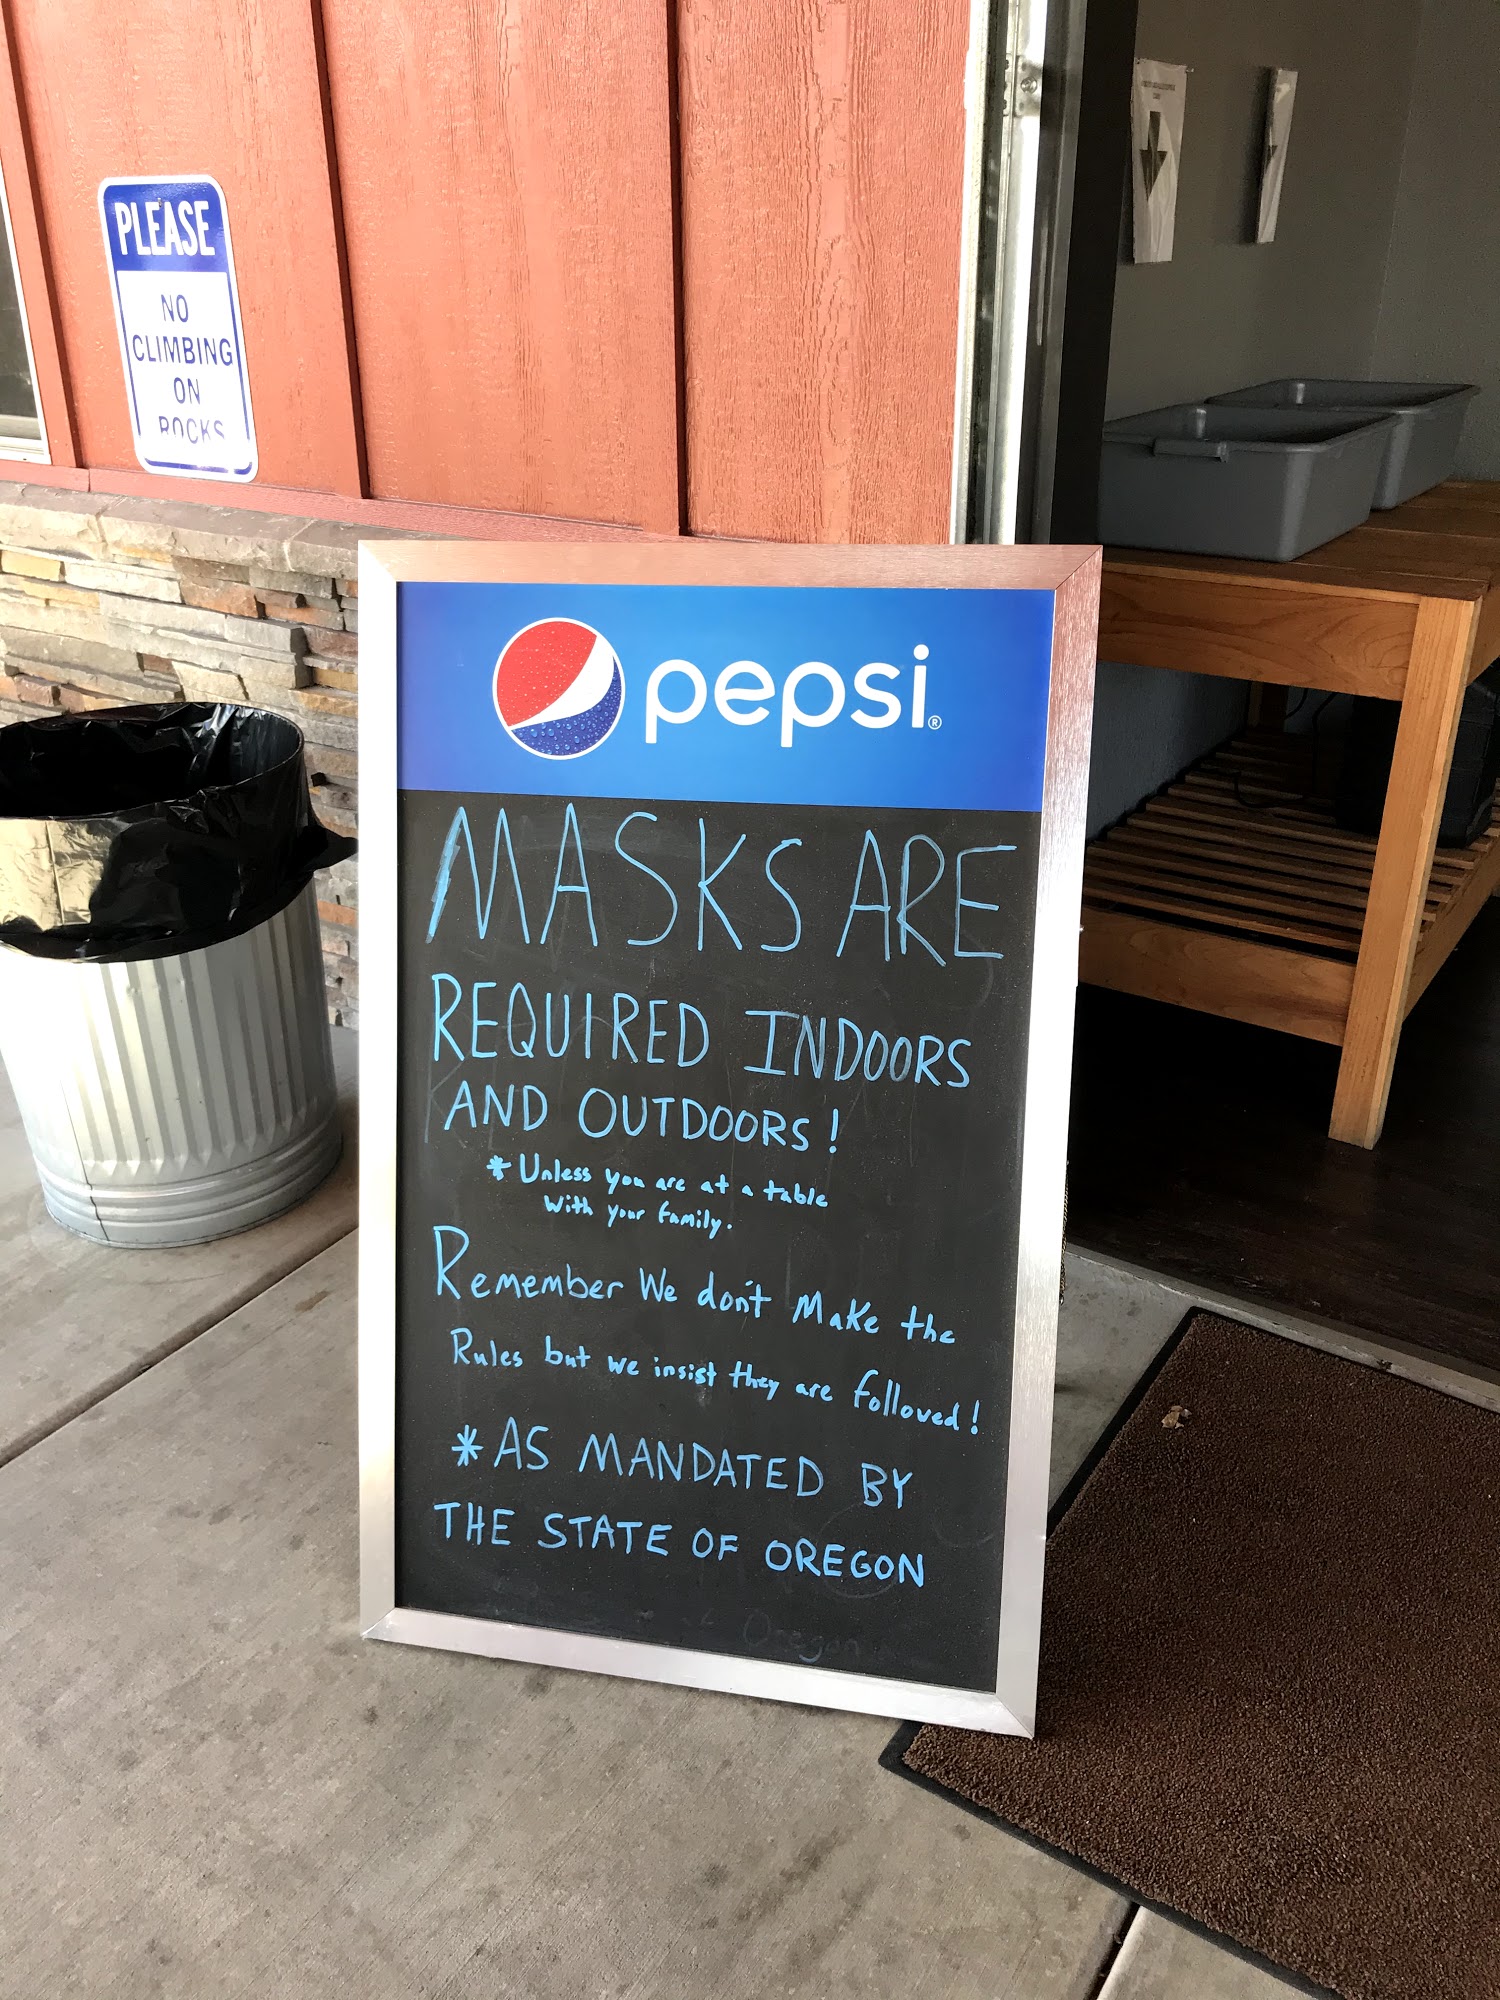 PLEASE
NO
CLIMBING
ON
ROCKS
pepsi®
MASKS ARE
REQUIRED INDOORS
AND OUTDOORS!
* Unless you are at a table
with your family.
Remember We don't Make the
Rules but we insist they are followed!
* AS MANDATED BY
THE STATE OF OREGON
Oregon